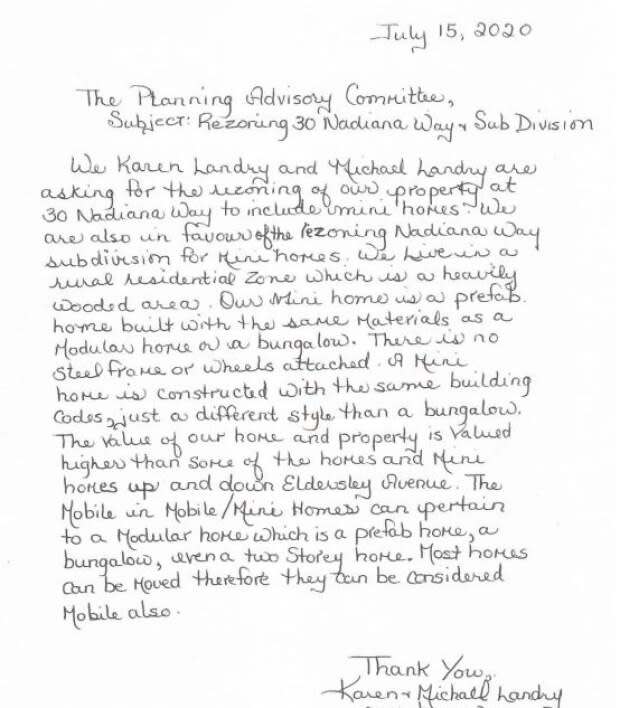 July 15, 2020
The Planning Advisory Committee,
Subject: Rezoning 30 Nadiana Way + Sub Division
We Karen Landry and Michael Landry are
asking for the rezoning of our property at
30 Nadiana Way to include mini homes. We
are also in favour of the rezoning Nadiana Way
subdivision for Mini homes. We live in a
rural residential Zone which is a heavily
wooded area. Our Mini home is a prefab
home built with the same Materials as a
Modular home or a bungalow. There is no
Steel frame or wheels attached. A Mini
home is constructed with the same building
Codes, just a different style than a bungalow.
The value of our home and property is Valued
higher than some of the homes and Mini
homes up and down Eldersley Avenue. The
Mobile in Mobile/Mini Homes can pertain
to a Modular home which is a prefab home, a
bungalow, even a two Storey home. Most homes
can be Moved therefore they can be considered
Mobile also.
Thank You,
Karen + Michael Landry